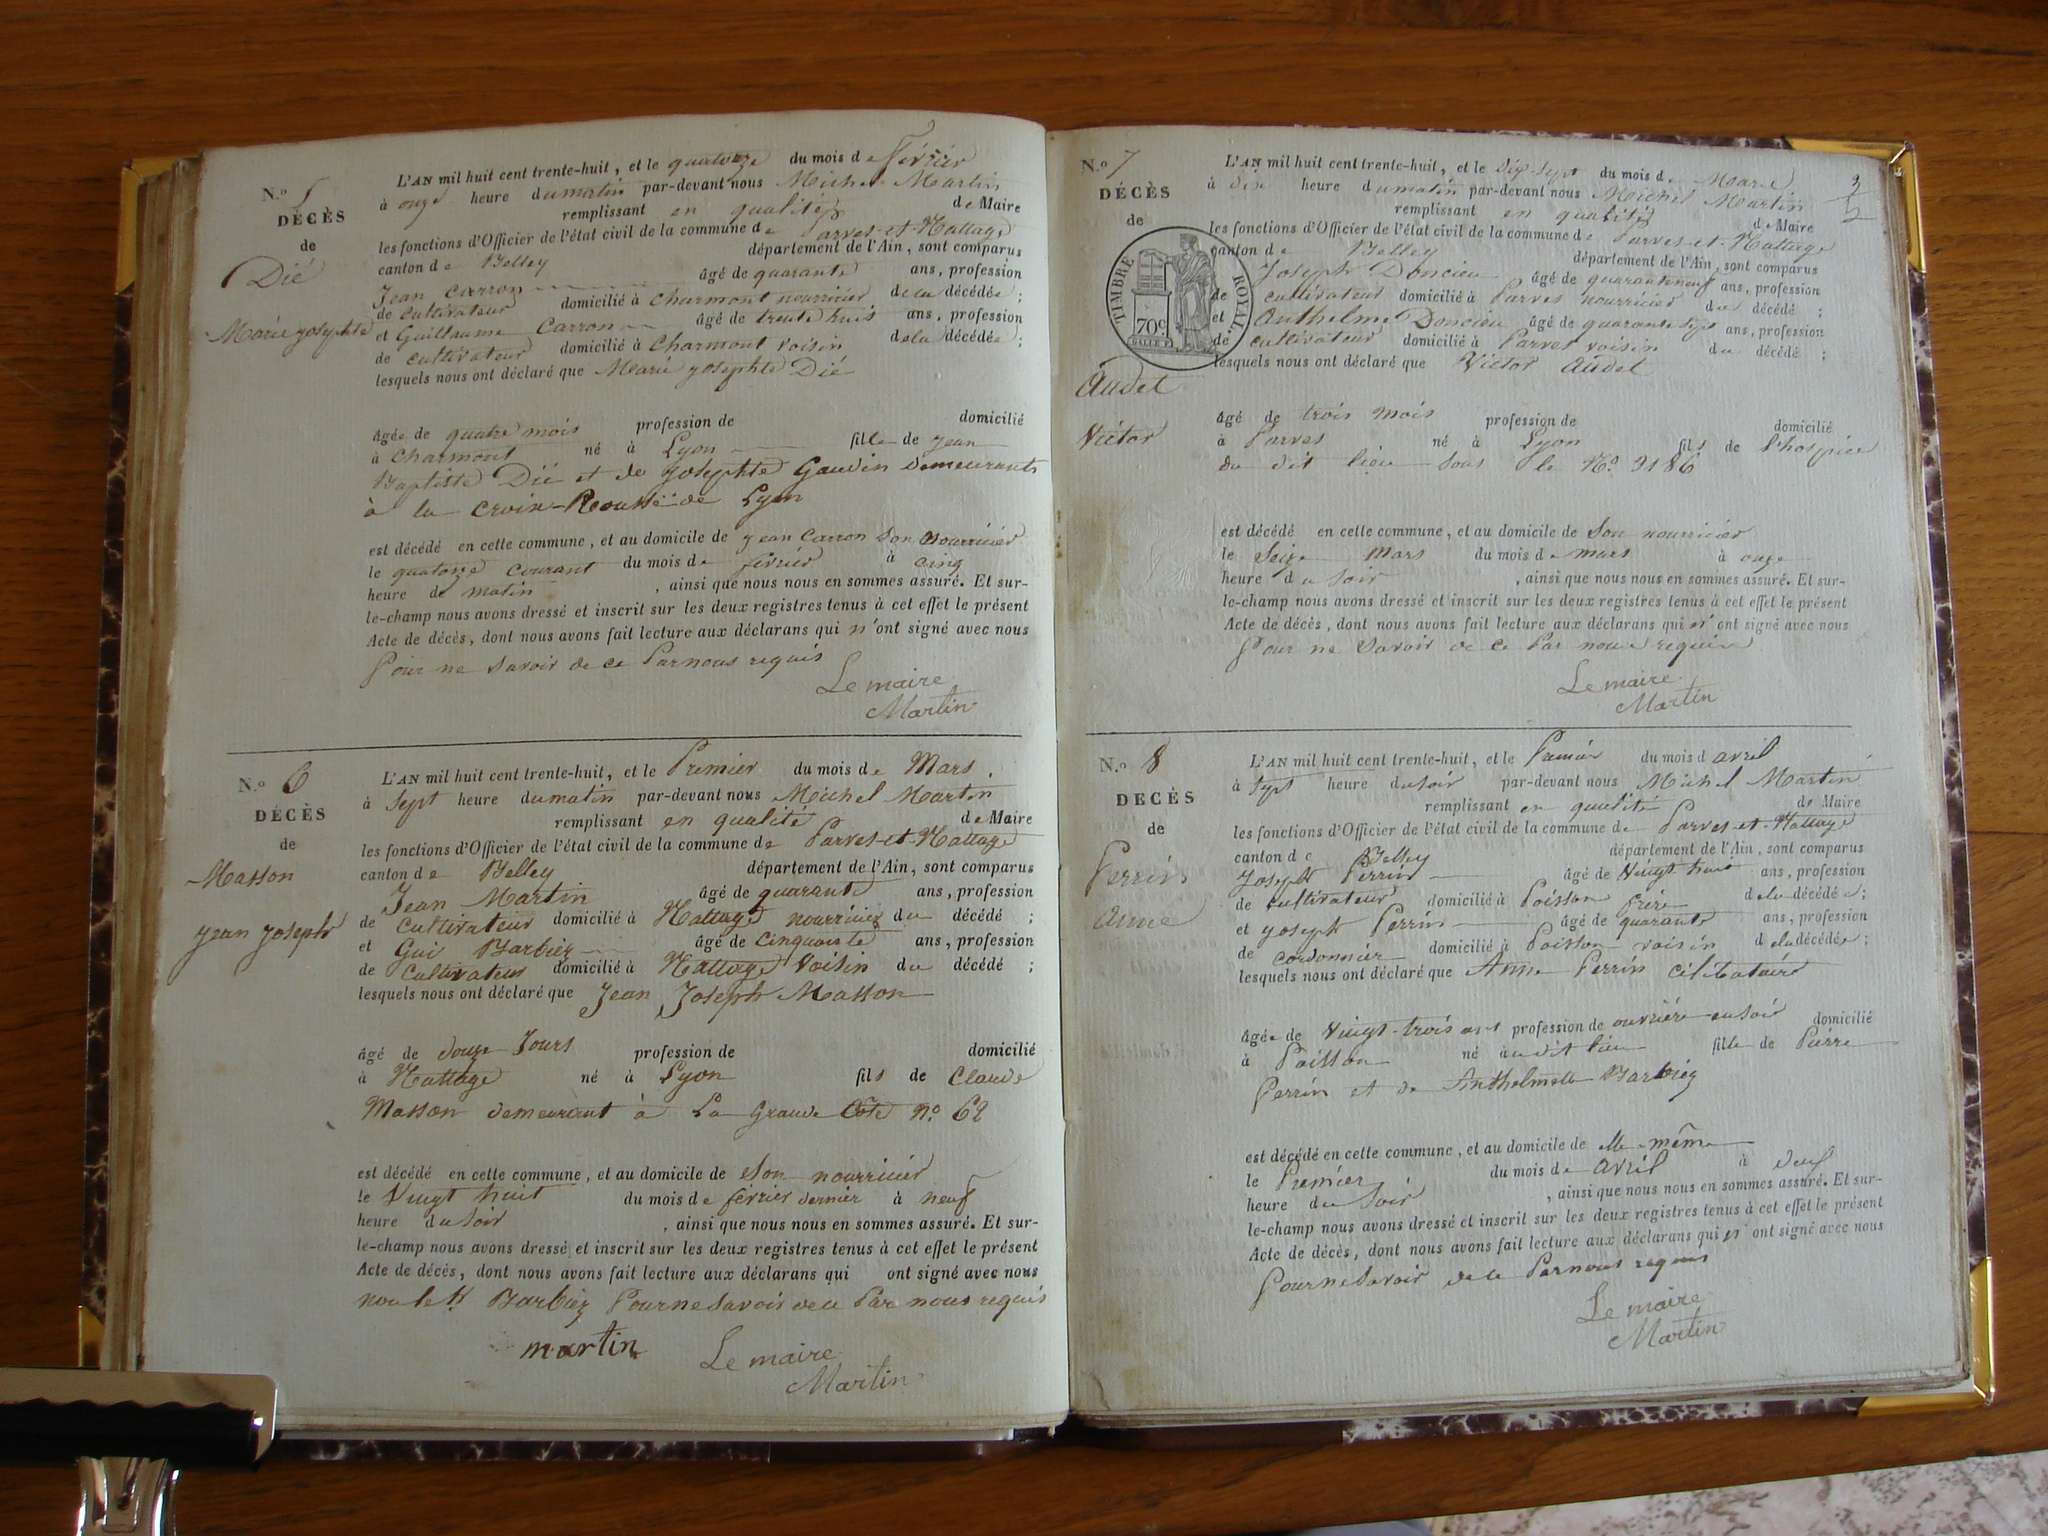 N.o 5
DÉCÈS
de
Dié
Marie josephte
L'AN mil huit cent trente-huit, et le quatorze du mois de février
à onze heure du matin par-devant nous Michel Martin
remplissant en qualité de Maire
les fonctions d'Officier de l'état civil de la commune de Parves-et-Nattage
canton de Belley département de l'Ain, sont comparus
Jean Carron âgé de quarante ans, profession
de cultivateur domicilié à Charmont nourricier de la décédée ;
et Guillaume Carron âgé de trente huit ans, profession
de cultivateur domicilié à Charmont voisin de la décédée ;
lesquels nous ont déclaré que Marie josephte Dié
âgée de quatre mois profession de domicilié
à Charmont né à Lyon fille de jean
Baptiste Dié et de josephte Gaudin demeurants
à la Croix-Rousse de Lyon
est décédé en cette commune, et au domicile de jean Carron son nourricier
le quatorze courant du mois de février à cinq
heure de matin , ainsi que nous nous en sommes assuré. Et sur-
le-champ nous avons dressé et inscrit sur les deux registres tenus à cet effet le présent
Acte de décès, dont nous avons fait lecture aux déclarans qui n'ont signé avec nous
Pour ne savoir de ce Par nous requis
Le maire
Martin
N.o 6
DÉCÈS
de
Masson
jean joseph
L'AN mil huit cent trente-huit, et le Premier du mois de Mars
à sept heure du matin par-devant nous Michel Martin
remplissant en qualité de Maire
les fonctions d'Officier de l'état civil de la commune de Parves-et-Nattage
canton de Belley département de l'Ain, sont comparus
Jean Martin âgé de quarante ans, profession
de cultivateur domicilié à Nattage nourricier du décédé ;
et Gui Barbier âgé de cinquante ans, profession
de cultivateur domicilié à Nattage voisin du décédé ;
lesquels nous ont déclaré que Jean Joseph Masson
âgé de douze Jours profession de domicilié
à Nattage né à Lyon fils de Claude
Masson demeurant à La Grande Côte no. 62
est décédé en cette commune, et au domicile de son nourricier
le Vingt huit du mois de février dernier à neuf
heure du soir , ainsi que nous nous en sommes assuré. Et sur-
le-champ nous avons dressé et inscrit sur les deux registres tenus à cet effet le présent
Acte de décès, dont nous avons fait lecture aux déclarans qui ont signé avec nous
non le Barbier Pour ne savoir de ce Par nous requis
martin
Le maire
Martin
N.o 7
DÉCÈS
de
TIMBRE ROYAL
70c
Audet
Victor
L'AN mil huit cent trente-huit, et le dix sept du mois de Mars
à dix heure du matin par-devant nous Michel Martin
remplissant en qualité de Maire
les fonctions d'Officier de l'état civil de la commune de Parves-et-Nattage
canton de Belley département de l'Ain, sont comparus
Joseph Doncieu âgé de quaranteneuf ans, profession
de cultivateur domicilié à Parves nourricier du décédé ;
et Anthelme Doncieu âgé de quarante sept ans, profession
de cultivateur domicilié à Parves voisin du décédé ;
lesquels nous ont déclaré que Victor Audet
âgé de trois mois profession de domicilié
à Parves né à Lyon fils de l'hospice
du dit lieu sous le No. 3186
est décédé en cette commune, et au domicile de son nourricier
le seize mars du mois de mars à onze
heure du soir , ainsi que nous nous en sommes assuré. Et sur-
le-champ nous avons dressé et inscrit sur les deux registres tenus à cet effet le présent
Acte de décès, dont nous avons fait lecture aux déclarans qui n'ont signé avec nous
Pour ne savoir de ce Par nous requis
Le maire
Martin
N.o 8
DECÈS
de
Perrin
anne
L'AN mil huit cent trente-huit, et le Premier du mois d avril
à sept heure du soir par-devant nous Michel Martin
remplissant en qualité de Maire
les fonctions d'Officier de l'état civil de la commune de Parves-et-Nattage
canton de Belley département de l'Ain, sont comparus
Joseph Perrin âgé de Vingt huit ans, profession
de cultivateur domicilié à Poisson frère de la décédée ;
et joseph Perrin âgé de quarante ans, profession
de cordonnier domicilié à Poisson voisin de la décédée ;
lesquels nous ont déclaré que Anne Perrin célibataire
âgée de Vingt-trois ans profession de ouvrière en soie domicilié
à Poisson né audit lieu fille de Pierre
Perrin et de Anthelmette Barbier
est décédé en cette commune, et au domicile de elle-même
le Premier du mois de avril à deux
heure du soir , ainsi que nous nous en sommes assuré. Et sur-
le-champ nous avons dressé et inscrit sur les deux registres tenus à cet effet le présent
Acte de décès, dont nous avons fait lecture aux déclarans qui n'ont signé avec nous
Pour ne savoir de ce Par nous requis
Le maire
Martin